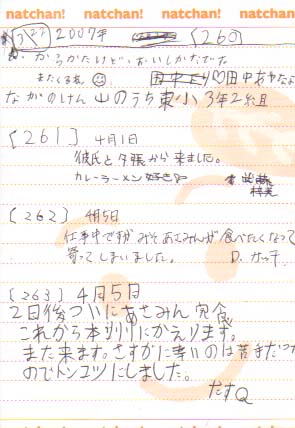 natchan! natchan! natchan! natchan!
3/27 2007年 [260]
からかったけど、おいしかたです
またくるね
田中より♡田中あやなより
ながのけん 山のうち東小 3年2組
[261] 4月1日
彼氏と夕張から来ました。
カレーラーメン好き♡
[262] 4月5日
仕事中ですが みそ あさみんが 食べたくなって
寄ってしまいました。 D.カッチ
[263] 4月5日
2日後ついにあさみん完食
これから本州にかえります。
また来ます。さすがに辛いのは苦手だった
のでトンコツにしました。
たすQ